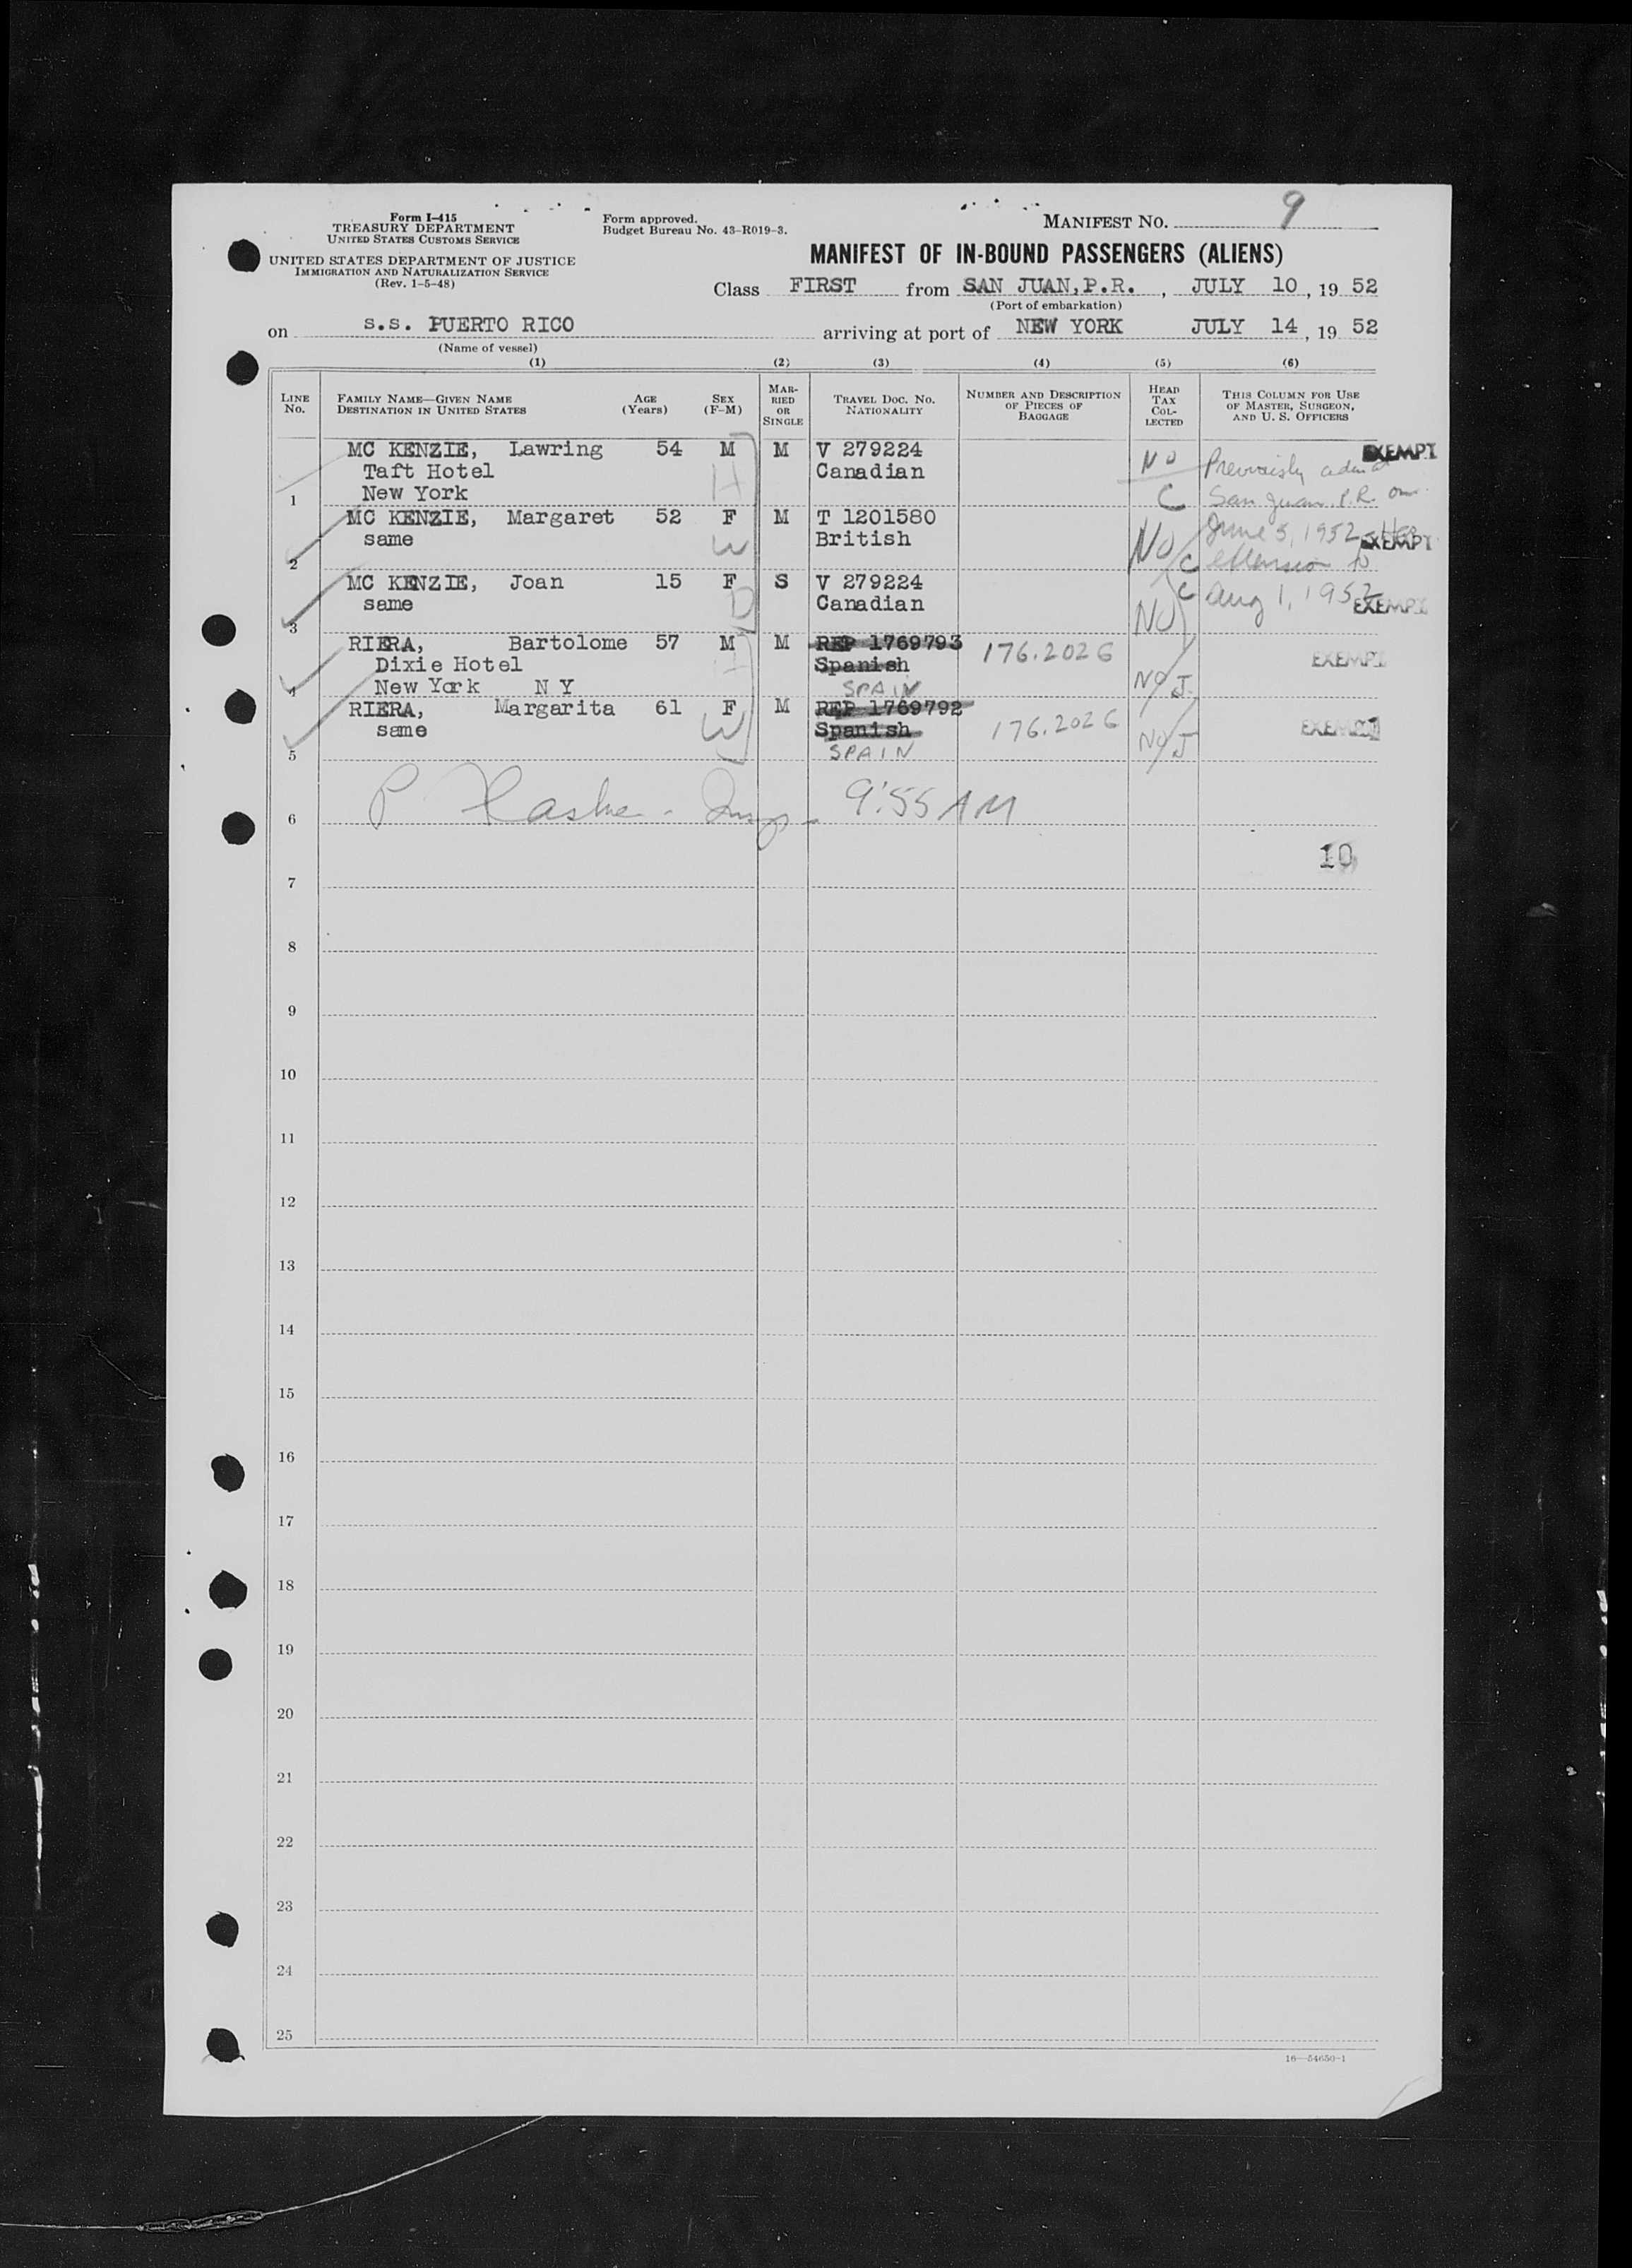 Form I-415
TREASURY DEPARTMENT
UNITED STATES CUSTOMS SERVICE
UNITED STATES DEPARTMENT OF JUSTICE
IMMIGRATION AND NATURALIZATION SERVICE
(Rev. 1-5-48)
Form approved.
Budget Bureau No. 43-R019-3.
MANIFEST NO. 9
MANIFEST OF IN-BOUND PASSENGERS (ALIENS)
Class FIRST from SAN JUAN, P.R., JULY 10, 19 52
(Port of embarkation)
on s.s. PUERTO RICO arriving at port of NEW YORK JULY 14, 19 52
(Name of vessel)
(1) (2) (3) (4) (5) (6)
LINE No.
FAMILY NAME—GIVEN NAME
DESTINATION IN UNITED STATES
AGE (Years)
SEX (F-M)
MARRIED OR SINGLE
TRAVEL DOC. NO. NATIONALITY
NUMBER AND DESCRIPTION OF PIECES OF BAGGAGE
HEAD TAX COLLECTED
THIS COLUMN FOR USE OF MASTER, SURGEON, AND U. S. OFFICERS
MC KENZIE, Lawring 54 M M V 279224 NO EXEMPT
Taft Hotel H Canadian Previously
1 New York C San Juan, P.R. on
MC KENZIE, Margaret 52 F M T 1201580 June 5, 1952
same W British NO EXEMPT
2 C to
MC KENZIE, Joan 15 F S V 279224 C Aug 1, 1952
same D Canadian NO EXEMPT
3
RIERA, Bartolome 57 M M REP 1769793 176.2026
Dixie Hotel H Spanish EXEMPT
4 New York N Y SPAIN NO J
RIERA, Margarita 61 F M REP 1769792 176.2026
same W Spanish NO J EXEMPT
5 SPAIN
6 P 9:55 AM
10
7
8
9
10
11
12
13
14
15
16
17
18
19
20
21
22
23
24
25
16—54650-1